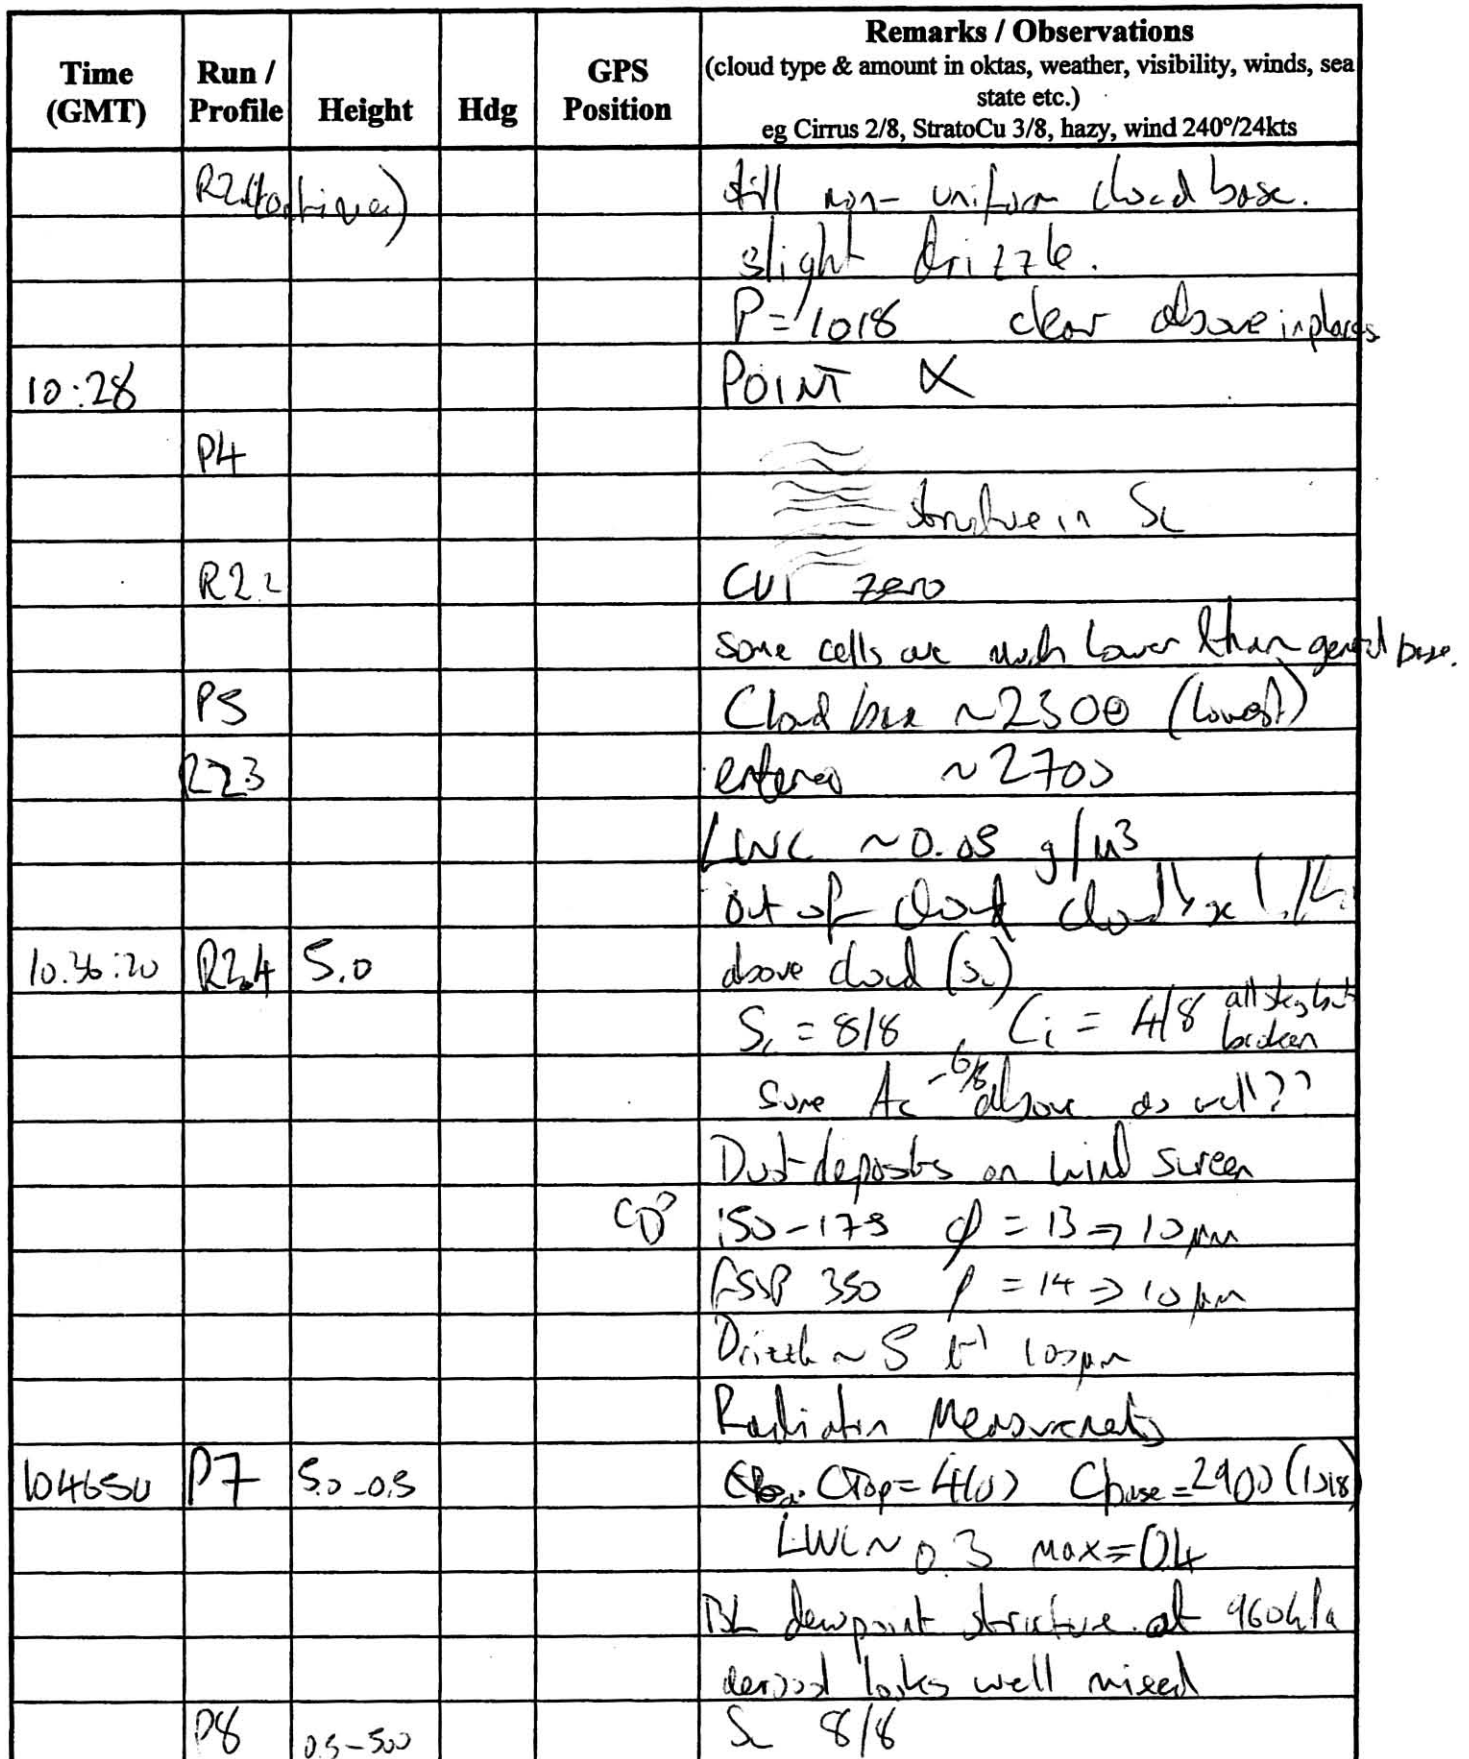 Time (GMT) Run / Profile Height Hdg GPS Position Remarks / Observations
(cloud type & amount in oktas, weather, visibility, winds, sea state etc.)
eg Cirrus 2/8, StratoCu 3/8, hazy, wind 240º/24kts
still non-uniform cloud base.
slight drizzle.
P=1018 clear above in places
10:28 POINT
P4
structure in Sc
R2.2 CVI zero
some cells are much lower than general base.
P5 Cloud base ~2300 (lowest)
R23 entered ~2700
LWC ~0.05 g/m³
out of cloud
10.36:20 R2.4 5.0 above cloud (Sc)
Sc = 8/8, Ci = 4/8 broken
some Ac above as well??
Dust deposits on wind screen
150-175 = 13 → 10 μm
FSSP 350 = 14 → 10 μm
Drizzle ~ 5 l⁻¹ 100μm
Radiation Measurements
104650 P7 5.0-0.5 CTop= Cbase=2900 (1018)
LWC~0.3 max=0.4
BL dewpoint structure at 960hPa
aerosol looks well mixed
P8 0.5-500 Sc 8/8